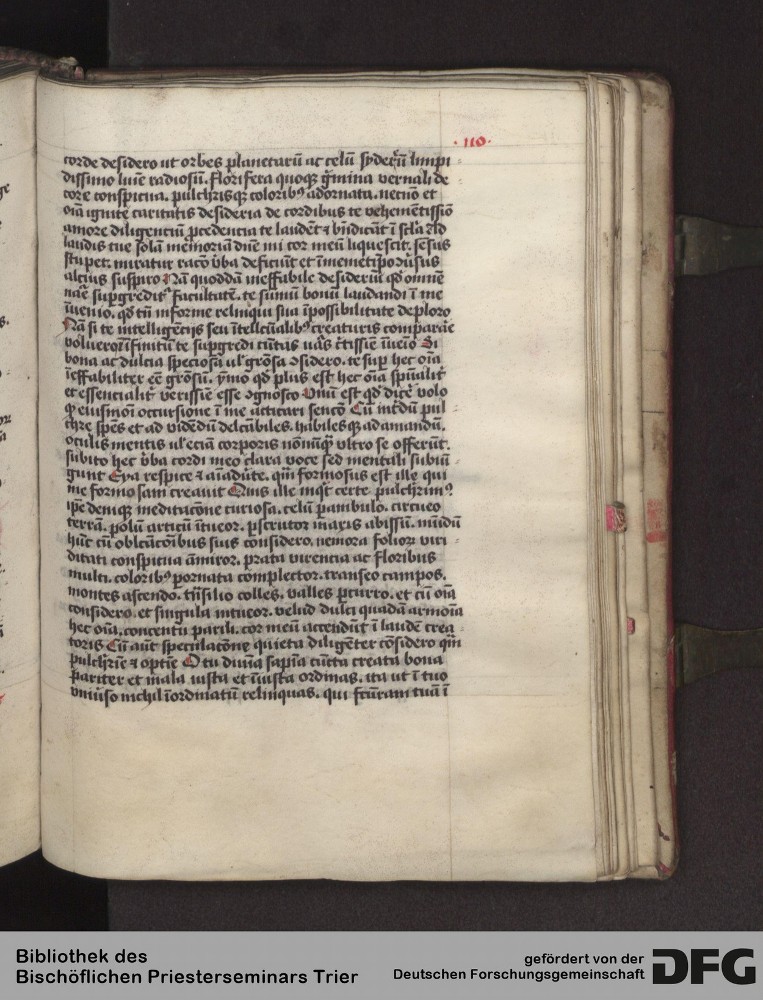 ·110·
corde desidero ut orbes planetarū ac celū syderū limpi
dissimo luīe radiosū. florifera quoqꝫ gͥmina vernali de
core conspicua. pulchrisqꝫ coloribꝰ adornata. necnō et
oīa ignite caritatis desideria de cordibus te vehemētissīo
amore diligenciū
laudis tue solā memoriā dn̄e mi cor meū liquescit. sēsus
stupet. miratur racō v̄ba deficiūt et ī memetip̄o rursus
alcius suspiro Nā quoddā ineffabile desideriū qd̓ omnē
nāe supgreditᷣ facultatē. te sūmū bonū laudandi ī me
īuenio. qd̓ tn̄ informe relinqui sua īpossibilitate deploro
Nā si te intelligēcijs seu ītellcūalibꝰ creaturis comparāe
voluero īfinitū te supgredi cūctas
bona ac dulcia speciosa ul̓ grōsa ꝯsidero. te sup hec oīa
īeffabiliter eē grōsū. ymo qd̓ plus est hec oīa spūalit̓
et essencialit̓ verissīe esse ꝯgnosco Vnū est qd̓ dicē volo
ꝙ eiusmōi occursione ī me actitari sencō Cū īt̓dū pul
chre spēs et ad vidēdū delcābiles. habilesqꝫ ad amandū.
oculis mentis ul̓ eciā corporis nōnūqꝫ vltro se offerūt.
subito hec v̄ba cordi meo clara voce sed mentali subiū
gunt Eya respice ⁊ aīadūte. qm̄ formosus est ille qui
me formosam creauit Quis ille inqͣt certe pulcherrimꝰ
ip̄e deniqꝫ meditacōne curiosa. celū pambulo. circueo
terrā. polū articū ītueor. pscrutor maris abissū. mūdū
hūc cū oblcācōibus suis considero. nemora folioꝝ viri
ditati conspicua āmiror. prata virencia ac floribus
multi coloribꝰ pornata complector. transeo campos.
montes ascendo. trīsilio colles. valles pcurro. et cū oīa
considero. et singula intueor. velud dulci quadā armoīa
hec oīa. concentu parili. cor meū accendūt ī laudē crea
toris Cū aūt speculacōne quieta diligēter cōsidero qm̄
pulchrīe ⁊ optīe O tu diuīa sapīa cūcta creata bona
pariter et mala iusta et īiusta ordinas. ita ut ī tuo
vniūso nichil īordinatū relinquas. qui frūram tuā ī
Bibliothek des
Bischöflichen Priesterseminars Trier
gefördert von der
Deutschen Forschungsgemeinschaft
DFG